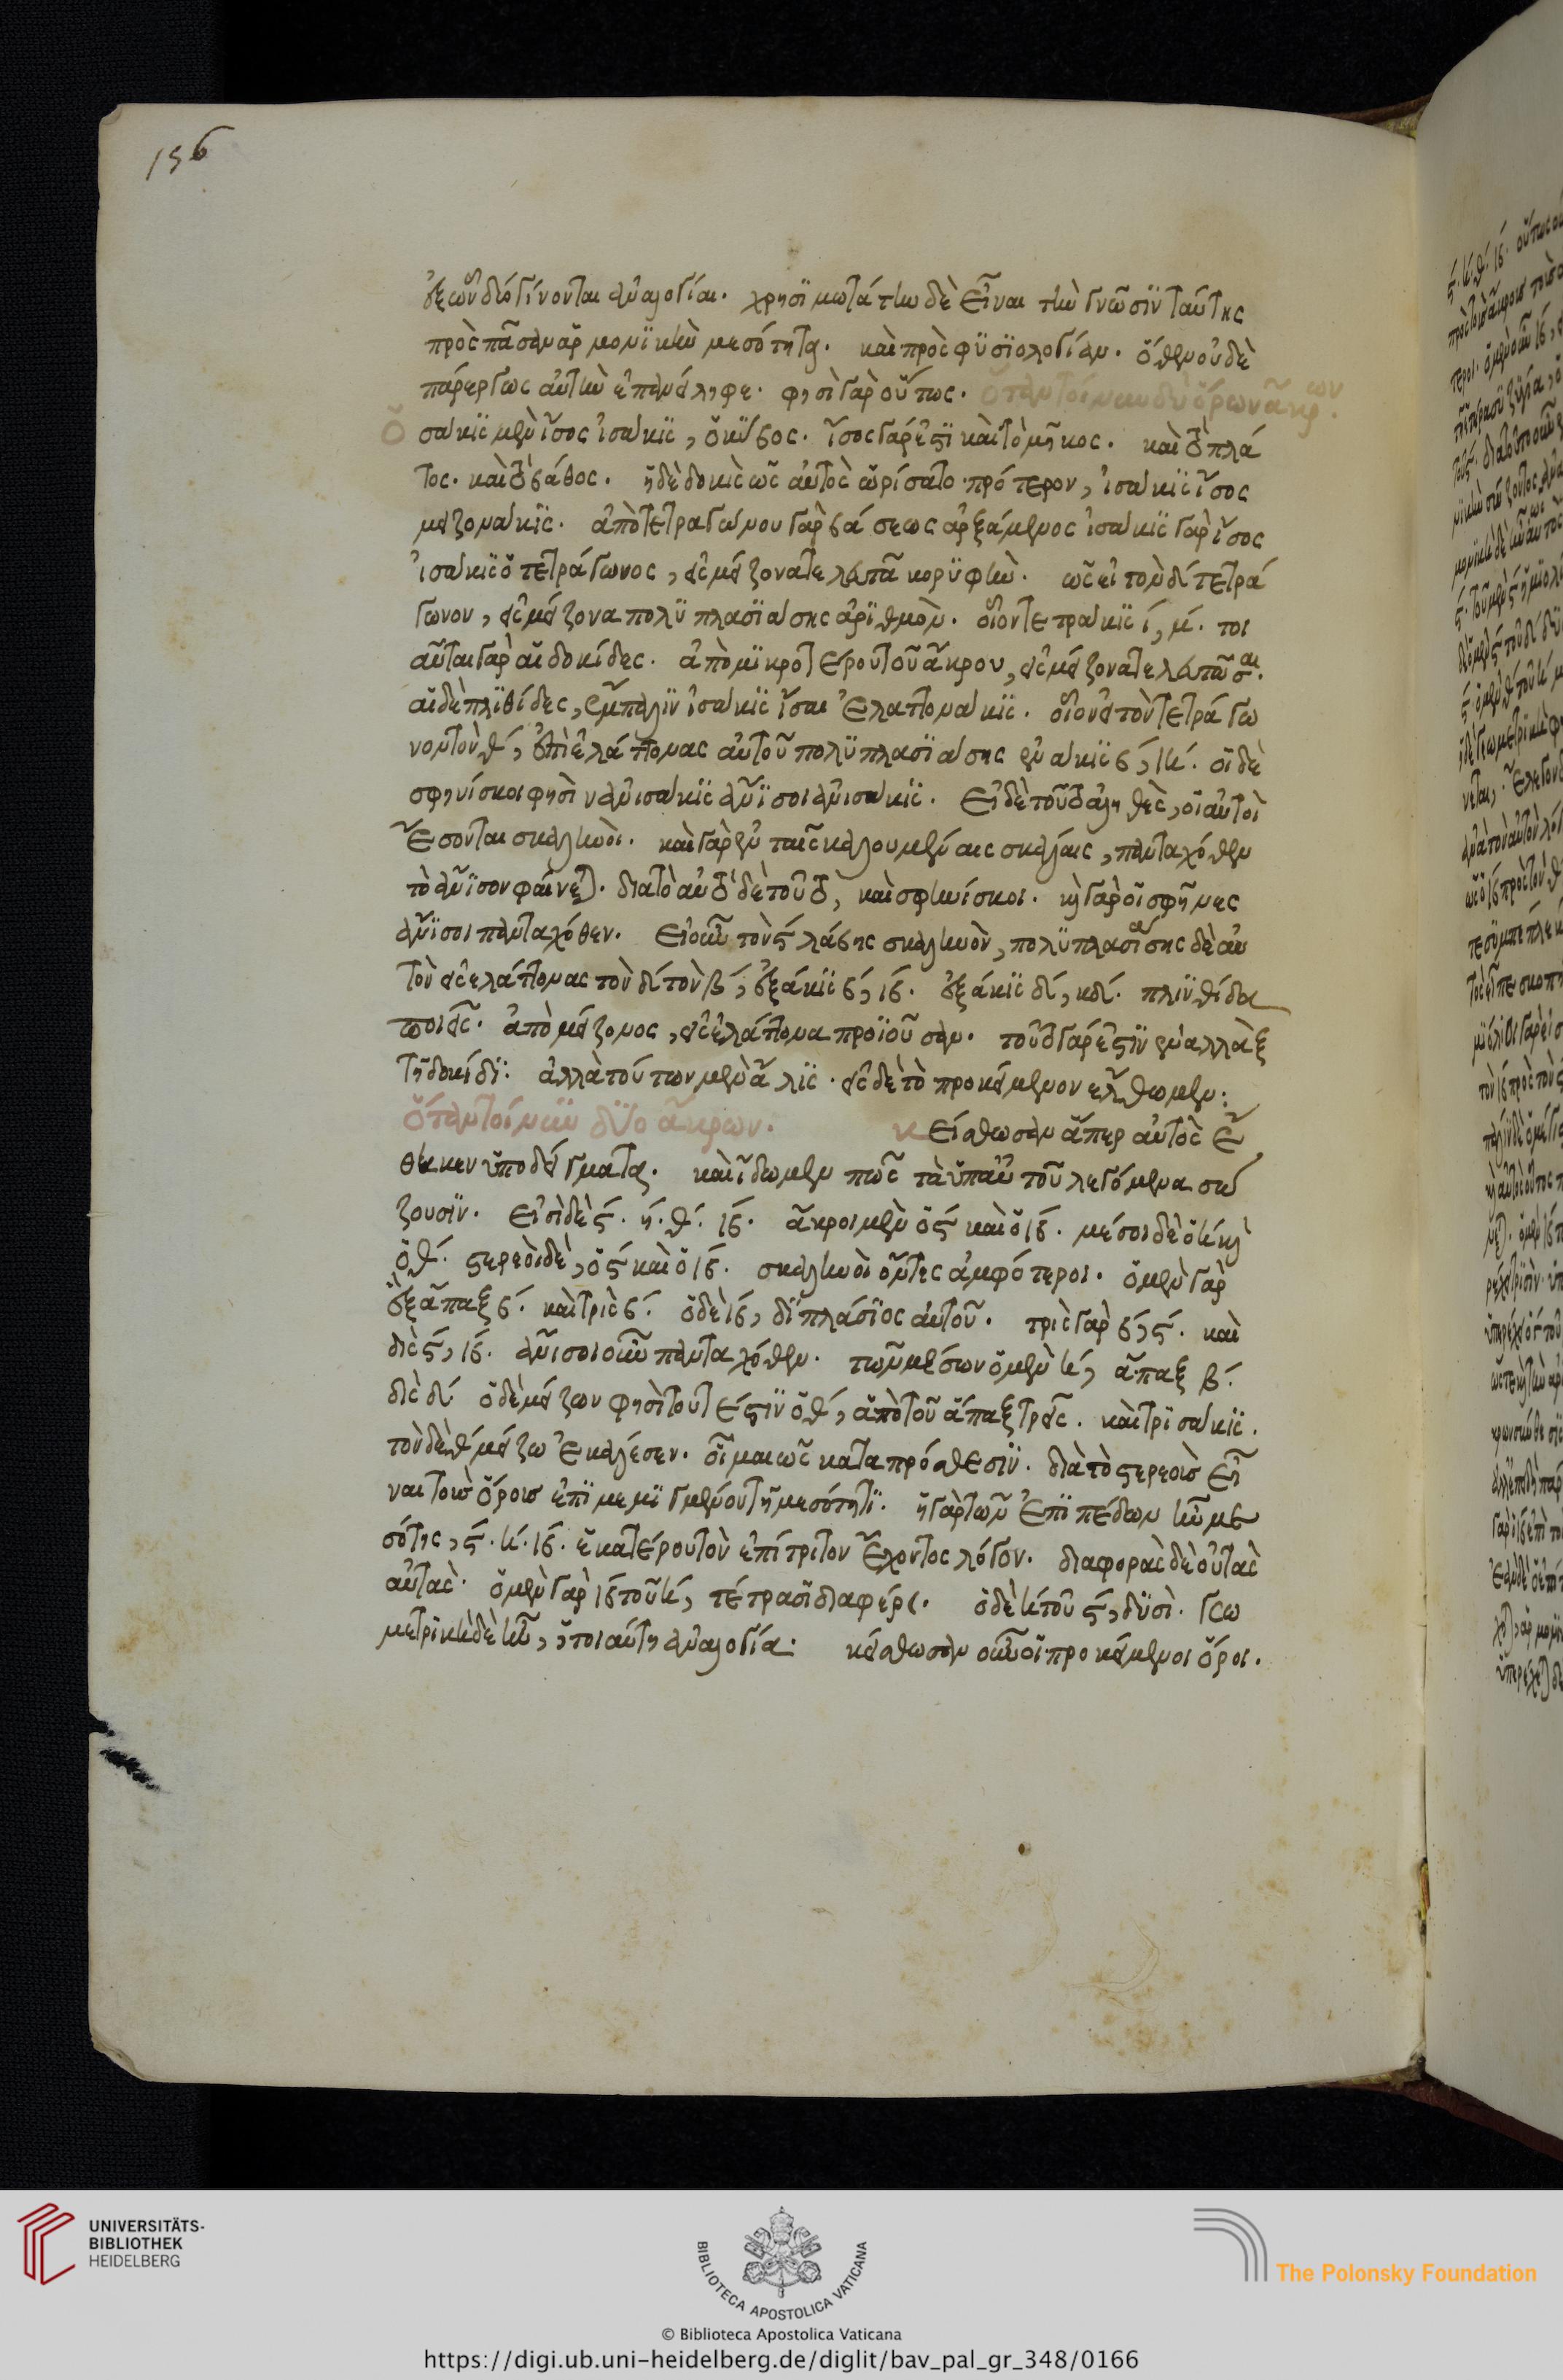 156
ἐξ ὧν διὸ γίνονται ἀναλογίαι. χρησϊμωτάτην δὲ εἶναι τὴν γνῶσϊν ταύτης
πρὸς πᾶσαν ἁρμονϊκὴν μεσότητα. καὶ πρὸς φϋσϊολογίαν. ὅθεν οὐδὲ
παρέργως αὐτὴν ἐπανείληφε. φησὶ γὰρ οὕτως. ὅταν τοίνυν δύο ὅρων ἄκρων.
Ὁ σακϊς μὲν ἴσος ἰσακϊς, ὁ κύβος. ἴσος γάρ ἐστϊ καὶ τὸ μῆκος. καὶ τὸ πλά
τος. καὶ τὸ βάθος. ἡ δὲ δοκὶς ὡς αὐτὸς ὡρίσατο πρότερον, ἰσακϊς ἴσος
μειζονακϊς. ἀπὸ τετραγώνου γὰρ βάσεως ἀρξάμενος ἰσακϊς γὰρ ἴσος
ἰσακϊς ὁ τετράγωνος, εἰς μείζονα τελευτᾶ κορϋφήν. ὡς εἰ τὸν δ΄ τετρά
γωνον, εἰς μείζονα πολϋπλασϊάσης ἀρϊθμὸν. οἷον τετρακϊς ι΄, μ΄. τοι
αῦται γὰρ αἱ δοκίδες. ἀπὸ μϊκροτέρου τοῦ ἄκρου, εἰς μείζονα τελευτᾶσαι.
αἱ δὲ πλϊθίδες, ἔμπαλϊν ἰσακϊς ἴσαι ἐλαττονακϊς. οἷον εἰ τὸν τετράγω
νον τὸν θ΄, ἐπὶ ἐλάττονας αὐτοῦ πολϋπλασϊάσης ἐνακϊς β΄, ιη΄. οἱ δὲ
σφηνίσκοι φησὶν ἀνισακϊς ἄνϊσοι ἀνισακϊς. εἰ δὲ τοῦτο ἀληθὲς, οἱ αὐτοὶ
ἔσονται σκαληνοὶ. καὶ γὰρ ἐν ταῖς καλουμέναις σκάλαις, πανταχόθεν
τὸ ἄνϊσον φαίνεται. διὰ τὸ αὐτὸ δὲ τοῦτο, καὶ σφηνίσκοι. καὶ γὰρ οἱ σφῆνες
ἄνϊσοι πανταχόθεν. εἰ οὖν τὸν ς΄ λάβης σκαληνὸν, πολϋπλασϊάσης δὲ αὐ
τὸν εἰς ἐλάττονας τὸν δ΄ τὸν β΄, ἑξάκϊς β΄, ιβ΄. ἑξάκϊς δ΄, κδ΄. πλϊνθίδα
ποιεῖς. ἀπὸ μείζονος, εἰς ἐλάττονα προϊοῦσαν. τοῦτο γάρ ἐστϊν ἐναλλὰξ
τῆ δοκίδϊ. ἀλλὰ τούτων μὲν ἅλϊς. εἰς δὲ τὸ προκείμενον ἔλθωμεν:
ὅταν τοίνυν δϋο ἄκρων. κ Είσθωσαν ἅπερ αὐτὸς ἔ
θηκεν ὑποδείγματα. καὶ ἴδωμεν πῶς τὰ ὑπ' αὐτοῦ λεγόμενα σώ
ζουσϊν. εἰσὶ δὲ ς΄. η΄. θ΄. ιβ΄. ἄκροι μὲν ὁ ς΄ καὶ ὁ ιβ΄. μέσοι δὲ ὁ η΄ καὶ
ὁ θ΄. στερεοὶ δὲ, ὁ ς΄ καὶ ὁ ιβ΄. σκαληνοὶ ὄντες ἀμφότεροι. ὁ μὲν γὰρ
ἐξ ἅπαξ β΄. καὶ τρὶς β΄. ὁ δὲ ιβ΄, δϊπλάσϊος αὐτοῦ. τρὶς γὰρ β΄, ς΄. καὶ
δὶς ς΄, ιβ΄. ἄνισοι οὖν πανταχόθεν. τῶν μέσων ὁ μὲν η΄, ἅπαξ β΄.
δὶς δ΄ ὁ δὲ μείζων φησὶ τουτέστϊν ὁ θ΄, ἀπὸ τοῦ ἅπαξ τρεῖς. καὶ τρϊσακϊς.
τὸν δὲ θ΄ μείζω ἐκάλεσεν. οἶμαι ὡς κατὰ πρόσθεσϊν. διὰ τὸ στερεοὶς εἶ
ναι τοὶς ὅροις ἐπϊμεμϊγμένου τῆ μεσότητϊ. ἡ γὰρ τῶν ἐπϊπέδων ἦν με
σότης, ς΄. η΄. ιβ΄. ἑκατέρου τὸν ἐπίτριτον ἔχοντος λόγον. διαφορὰς δὲ οὐ τὰς
αὐτὰς. ὁ μὲν γὰρ ιβ΄ τοῦ η΄, τέτρασϊ διαφέρει. ὁ δὲ η΄ τοῦ ς΄, δϋσὶ. γεω
μετρϊκὴ δὲ ἦν, ἡ τοιαύτη ἀναλογία. κείσθωσαν οὖν οἱ προκείμενοι ὅροι.
UNIVERSITÄTS-
BIBLIOTHEK
HEIDELBERG
BIBLIOTECA APOSTOLICA VATICANA
© Biblioteca Apostolica Vaticana
The Polonsky Foundation
https://digi.ub.uni-heidelberg.de/diglit/bav_pal_gr_348/0166